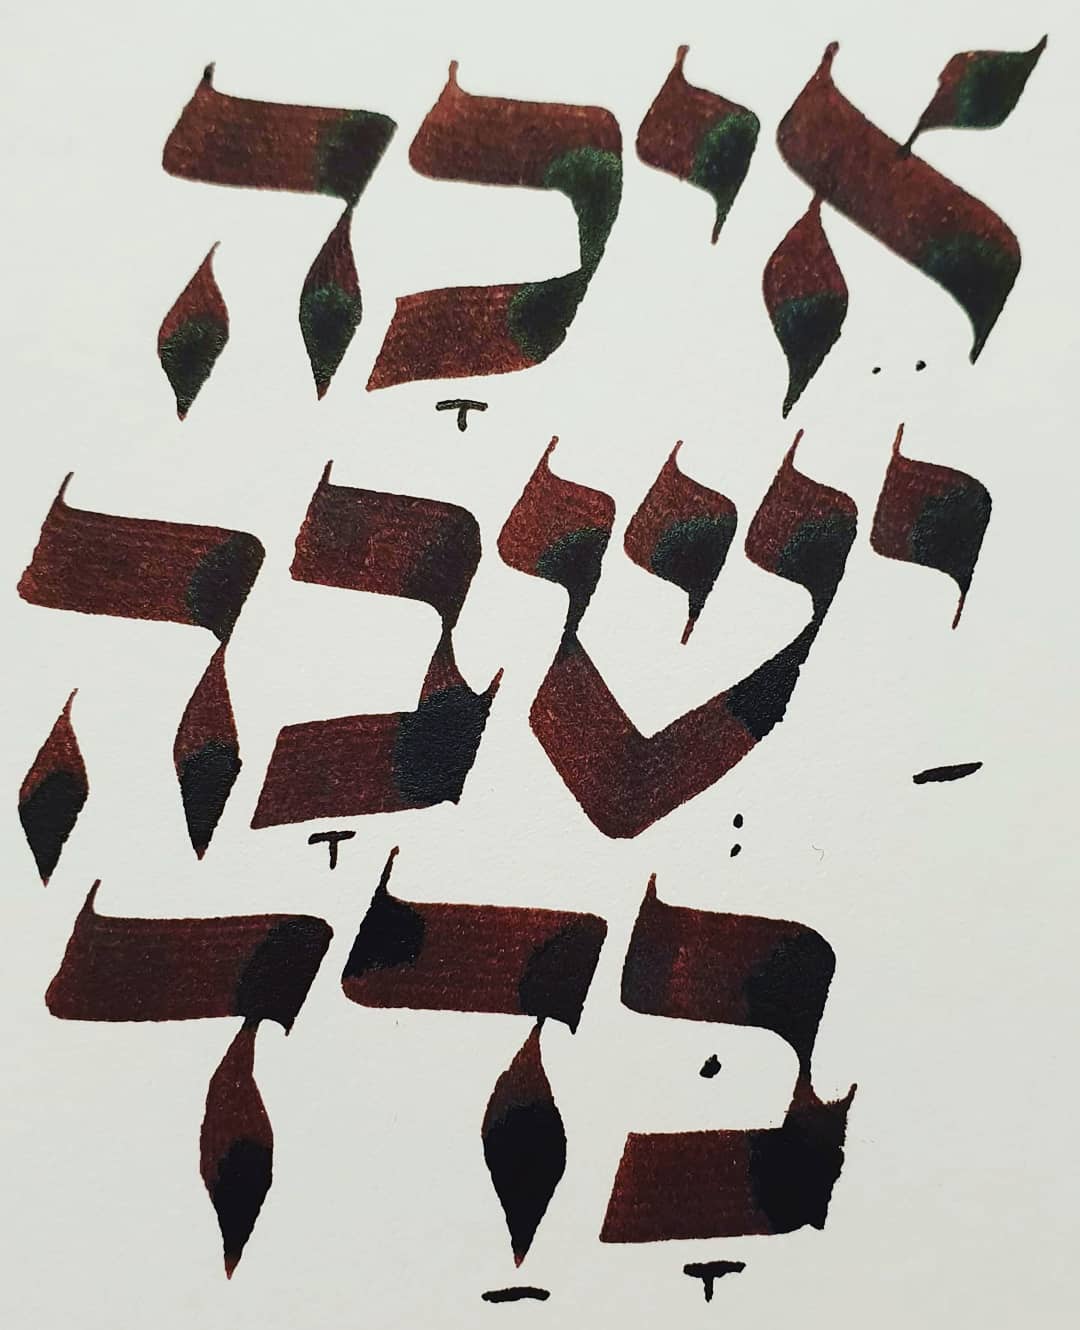 אֵיכָה
יַשְבָה
בָּדַד